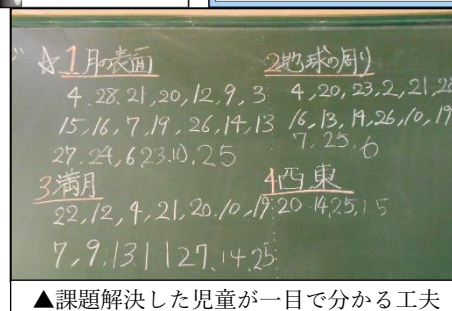 ☆1月の表面
4, 28, 21, 20, 12, 9, 3
15, 16, 7, 19, 26, 14, 13
27, 24, 6, 23, 10, 25
2地球の周り
4, 20, 23, 2, 21, 28
16, 13, 19, 26, 10, 19
7, 25, 6
3満月
22, 12, 4, 21, 20, 10, 19
7, 9, 13, 11, 27, 14, 25
4西東
20, 14, 25, 15
▲課題解決した児童が一目で分かる工夫